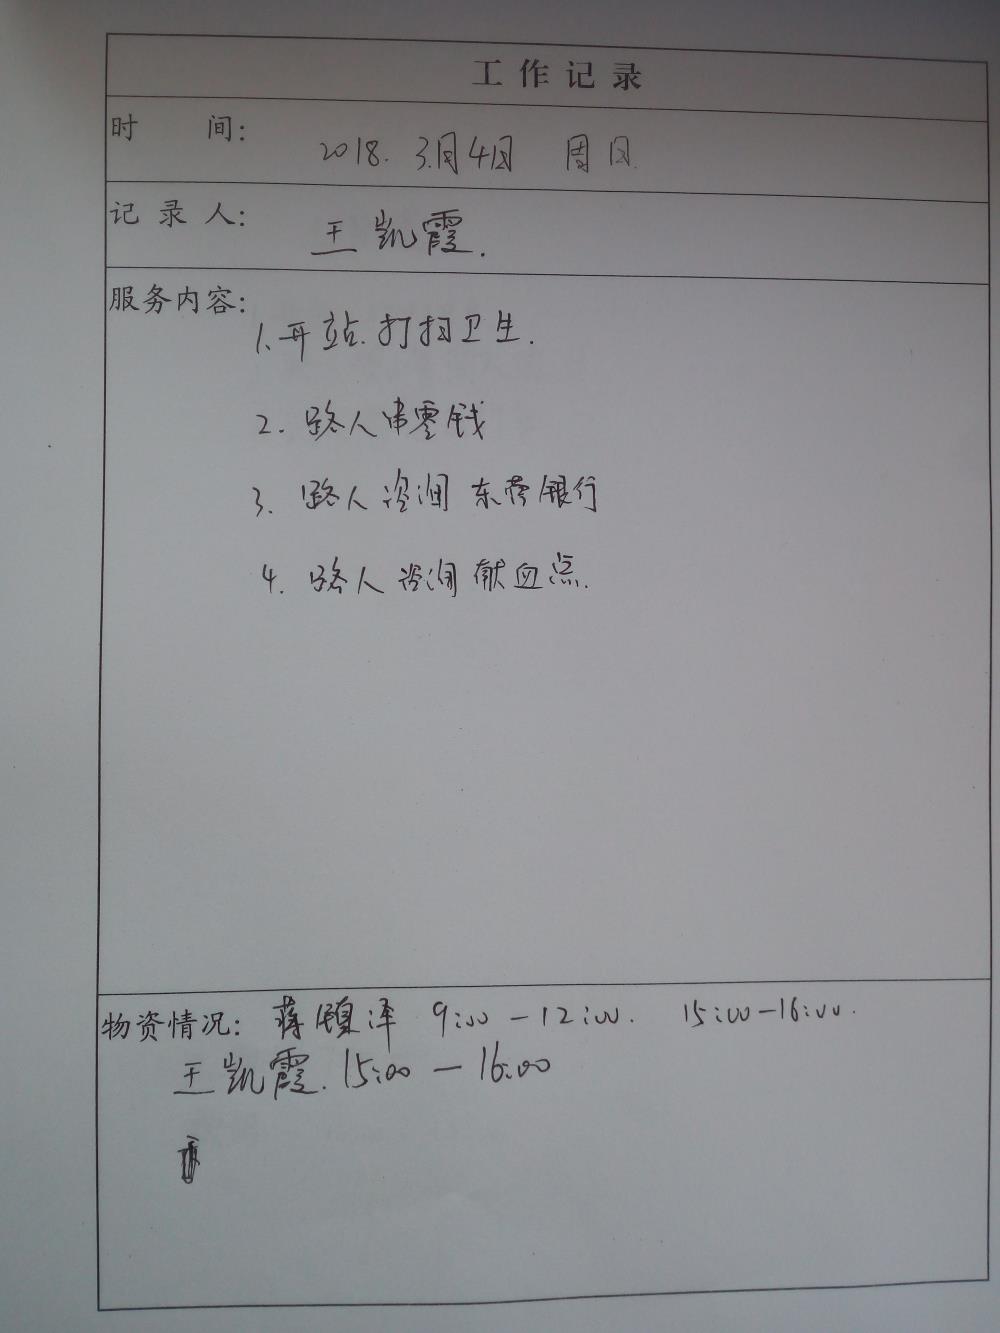 工作记录
时 间: 2018. 3月4日 周日.
记录人: 王凯霞.
服务内容:
1、开站.打扫卫生.
2. 路人串零钱
3. 路人咨询 东营银行
4. 路人咨询献血点.
物资情况: 蒋 泽 9:00-12:00. 15:00-16:00.
王凯霞. 15:00-16:00